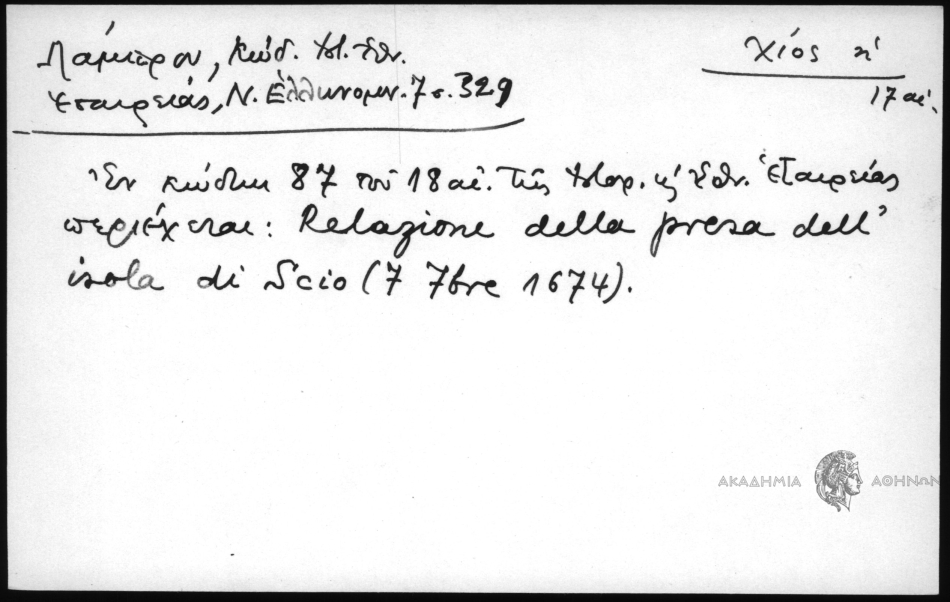 Λάμπρου, Κώδ. Ιστ. Εθν.
Εταιρείας, Ν. Ἑλληνομν. 7 σ. 329
Χίος
17 αἰ.
Ἐν κώδικι 87 τοῦ 18 αἰ. τῆς Ιστορ. κ' Εθν. Ἑταιρείας
περιέχεται: Relazione della presa dell'
isola di Scio (7 7bre 1674).
ΑΚΑΔΗΜΙΑ ΑΘΗΝΩΝ